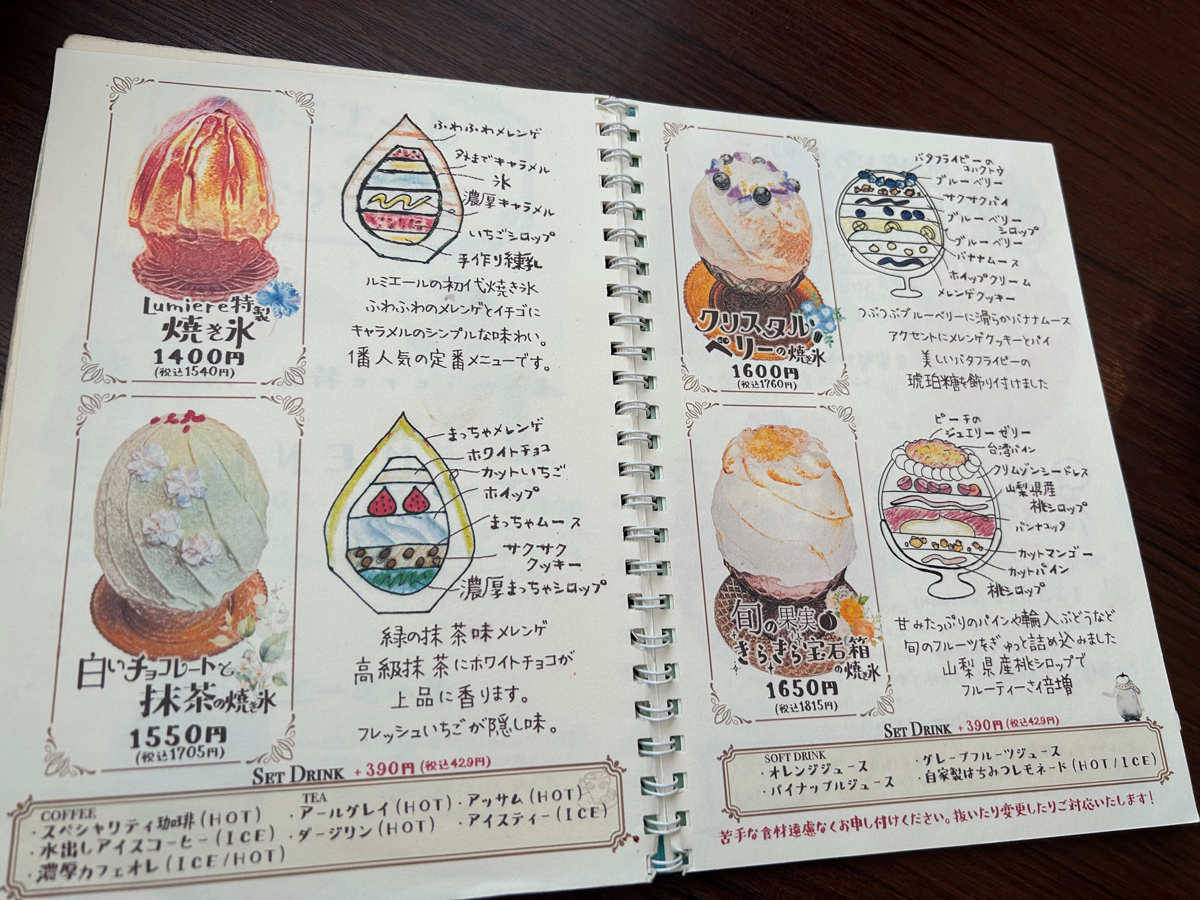 Lumiere特製
焼き氷
1400円
(税込1540円)
ふわふわメレンゲ
外までキャラメル
氷
濃厚キャラメル
いちごシロップ
手作り練乳
ルミエールの初代焼き氷
ふわふわのメレンゲとイチゴに
キャラメルのシンプルな味わい。
1番人気の定番メニューです。
白いチョコレートと
抹茶の焼き氷
1550円
(税込1705円)
まっちゃメレンゲ
ホワイトチョコ
カットいちご
ホイップ
まっちゃムース
サクサク
クッキー
濃厚まっちゃシロップ
緑の抹茶味メレンゲ
高級抹茶にホワイトチョコが
上品に香ります。
フレッシュいちごが隠し味。
SET DRINK +390円 (税込429円)
COFFEE
・スペシャリティ珈琲 (HOT)
・水出しアイスコーヒー (ICE)
・濃厚カフェオレ (ICE/HOT)
TEA
・アールグレイ (HOT)
・ダージリン (HOT)
・アッサム (HOT)
・アイスティー (ICE)
クリスタル
ベリーの焼き氷
1600円
(税込1760円)
バタフライピーの
コハクトウ
ブルーベリー
サクサクパイ
ブルーベリー
シロップ
ブルーベリー
バナナムース
ホイップクリーム
メレンゲクッキー
つぶつぶブルーベリーに滑らかバナナムース
アクセントにメレンゲクッキーとパイ
美しいバタフライピーの
琥珀糖を飾り付けました
旬の果実
きらきら宝石箱
の焼き氷
1650円
(税込1815円)
ピーチの
ジュエリーゼリー
台湾パイン
クリムゾンシードレス
山梨県産
桃シロップ
パンナコッタ
カットマンゴー
カットパイン
桃シロップ
甘みたっぷりのパインや輸入ぶどうなど
旬のフルーツをぎゅっと詰め込みました
山梨県産桃シロップで
フルーティーさ倍増
SET DRINK +390円 (税込429円)
SOFT DRINK
・オレンジジュース
・パイナップルジュース
・グレープフルーツジュース
・自家製はちみつレモネード (HOT/ICE)
苦手な食材遠慮なくお申し付けください。抜いたり変更したりご対応いたします!